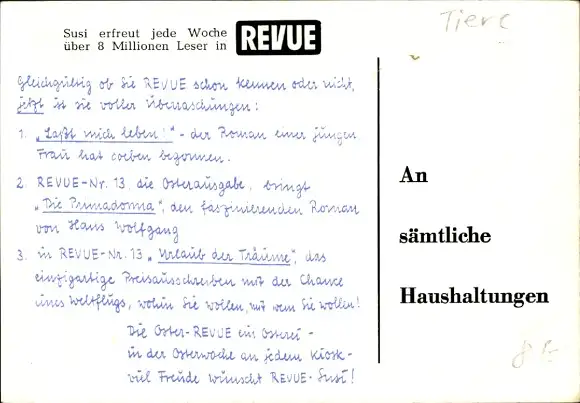 Susi erfreut jede Woche
über 8 Millionen Leser in REVUE
Tiere
Gleichgültig ob Sie REVUE schon kennen oder nicht,
jetzt ist sie voller Überraschungen:
1. „Laßt mich leben!" - der Roman einer jungen
Frau hat soeben begonnen.
2. REVUE-Nr. 13, die Osterausgabe, bringt
„Die Primadonna", den faszinierenden Roman
von Hans Wolfgang
3. in REVUE-Nr. 13 „Urlaub der Träume", das
einzigartige Preisausschreiben mit der Chance
eines Weltflugs, wohin Sie wollen, mit wem Sie wollen!
Die Oster-REVUE ein Osterei -
in der Osterwoche an jedem Kiosk -
viel Freude wünscht REVUE-Susi!
An
sämtliche
Haushaltungen